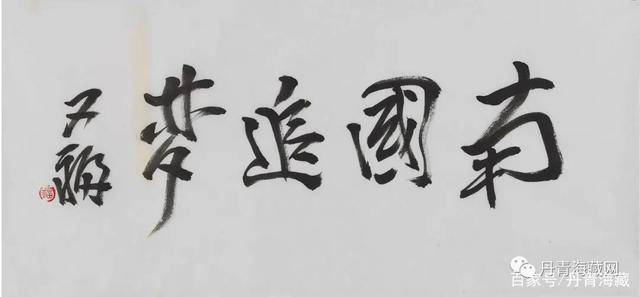 南國追夢
丹青海藏网
百家号/丹青海藏